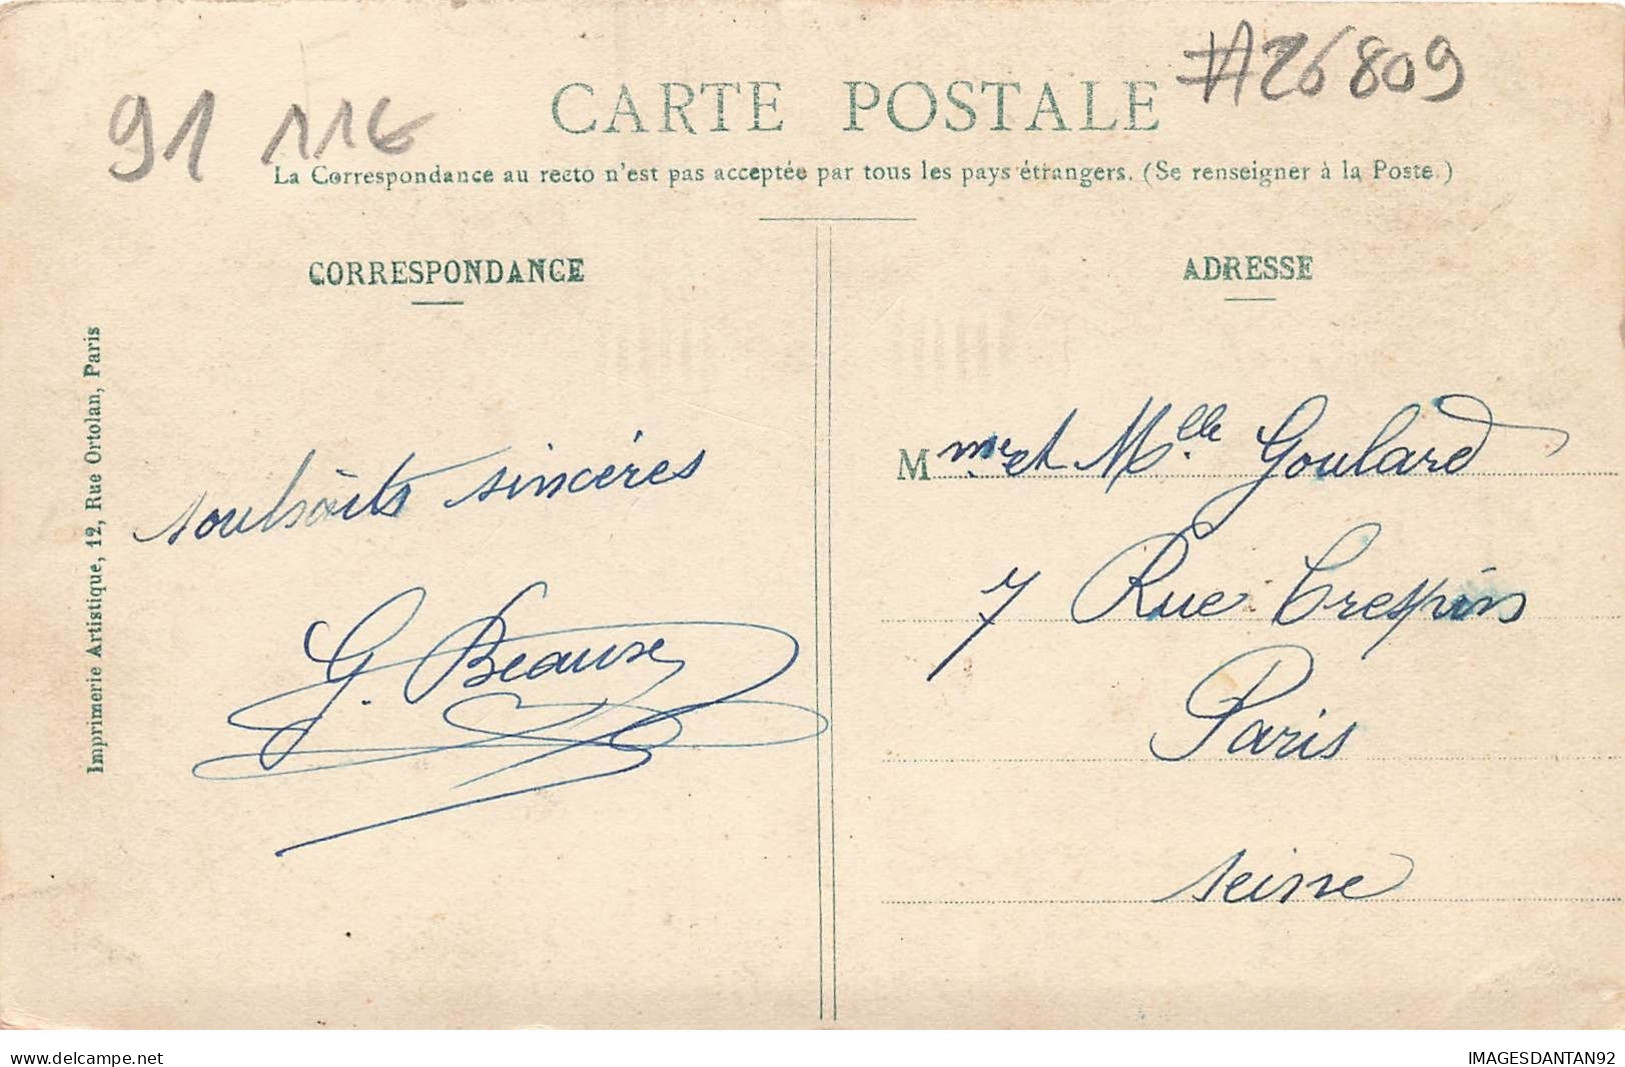 #26809
91 116
CARTE POSTALE
La Correspondance au recto n'est pas acceptée par tous les pays étrangers. (Se renseigner à la Poste.)
CORRESPONDANCE
Imprimerie Artistique, 12, Rue Ortolan, Paris
souhaits sincéres
G. Beausse
ADRESSE
Mme et Mlle Goulard
7 Rue Crespin
Paris
Seine
delcampe.net
IMAGESDANTAN92